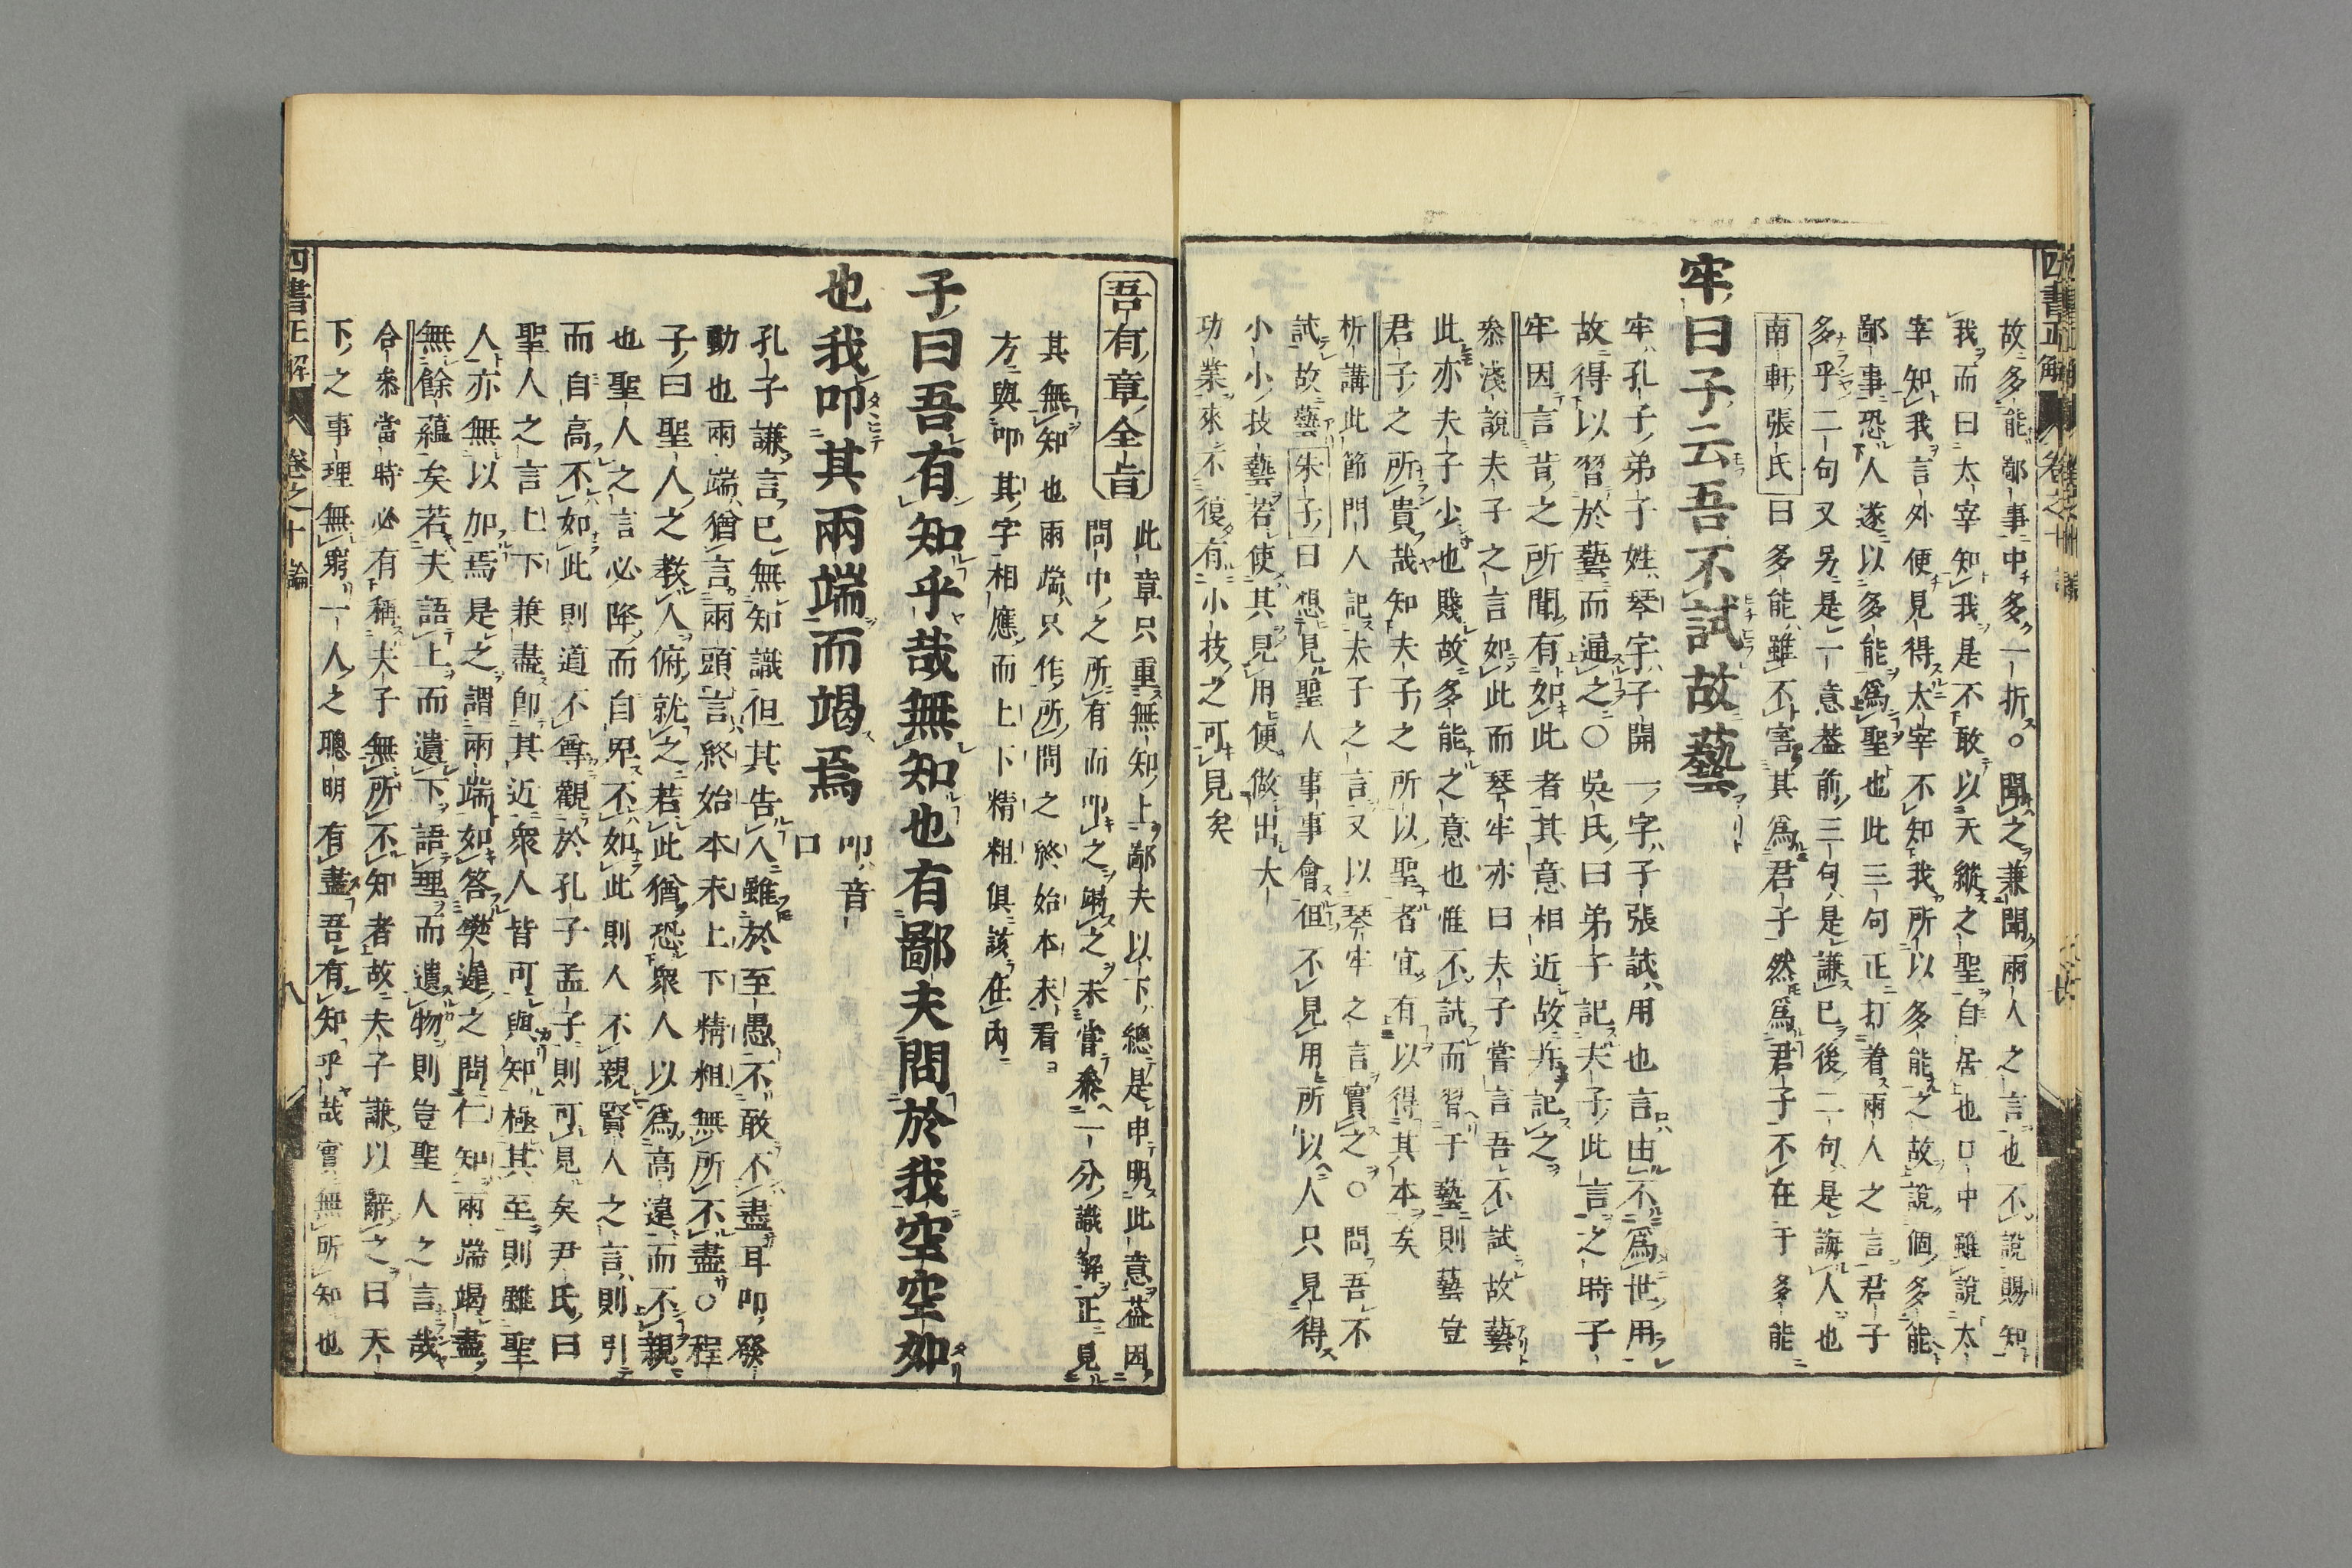 故多能鄙事中多一折○聞之兼聞兩人之言也不說賜知
我而曰太宰知我是不敢以天縱之聖自居也口中雖說太
宰知我言外便見得太宰不知我所以多能之故說個多能
鄙事恐人遂以多能爲聖也此三句正打着兩人之言君子
多乎二句又另是一意葢前三句是謙已後二句是誨人也
南軒張氏曰多能雖不害其爲君子然爲君子不在于多能
牢曰子云吾不試故藝
牢孔子弟子姓琴字子開一字子張試用也言由不爲世用
故得以習於藝而通之○吳氏曰弟子記夫子此言之時子
牢因言昔之所聞有如此者其意相近故并記之
叅淺說夫子之言如此而琴牢亦曰夫子嘗言吾不試故藝
此亦夫子少也賤故多能之意也惟不試而習于藝則藝豈
君子之所貴哉知夫子之所以聖者宜有以得其本矣
析講此節門人記夫子之言又以琴牢之言實之○問吾不
試故藝朱子曰想見聖人事事會但不見用所以人只見得
小小技藝若使其見用便做出大
功業來不復有小技之可見矣
四書正解 卷之十 論
吾有章全旨
此章只重無知上鄙夫以下總是申明此意葢因
問中之所有而叩之竭之未嘗叅一分識解正見
其無知也兩端只作所問之終始本末看
方與叩其字相應而上下精粗俱該在內
子曰吾有知乎哉無知也有鄙夫問於我空空如
也我叩其兩端而竭焉
叩音
口
孔子謙言已無知識但其告人雖於至愚不敢不盡耳叩發
動也兩端猶言兩頭言終始本末上下精粗無所不盡○程
子曰聖人之教人俯就之若此猶恐衆人以爲高遠而不親
也聖人之言必降而自卑不如此則人不親賢人之言則引
而自高不如此則道不尊觀於孔子孟子則可見矣尹氏曰
聖人之言上下兼盡卽其近衆人皆可與知極其至則雖聖
人亦無以加焉是之謂兩端如答樊遲之問仁知兩端竭盡
無餘蘊矣若夫語上而遺下語理而遺物則豈聖人之言哉
合叅當時必有稱夫子無所不知者故夫子謙以辭之曰天
下之事理無窮一人之聰明有盡吾有知乎哉實無所知也
四書正解 卷之十 論 八